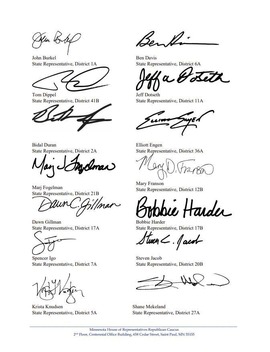 John Burkel
Ben Davis
State Representative, District 1A
State Representative, District 6A
Jeff Dotseth
Tom Dippel
Jeff Dotseth
State Representative, District 41B
State Representative, District 11A
Bidal Duran
Elliott Engen
State Representative, District 2A
State Representative, District 36A
Marj Fogelman
Mary Franson
Marj Fogelman
Mary Franson
State Representative, District 21B
State Representative, District 12B
Dawn Gillman
Bobbie Harder
Dawn Gillman
Bobbie Harder
State Representative, District 17A
State Representative, District 17B
Steven C. Jacob
Spencer Igo
Steven Jacob
State Representative, District 7A
State Representative, District 20B
Krista Knudsen
Shane Mekeland
State Representative, District 5A
State Representative, District 27A
Minnesota House of Representatives Republican Caucus
2nd Floor, Centennial Office Building, 658 Cedar Street, Saint Paul, MN 55155